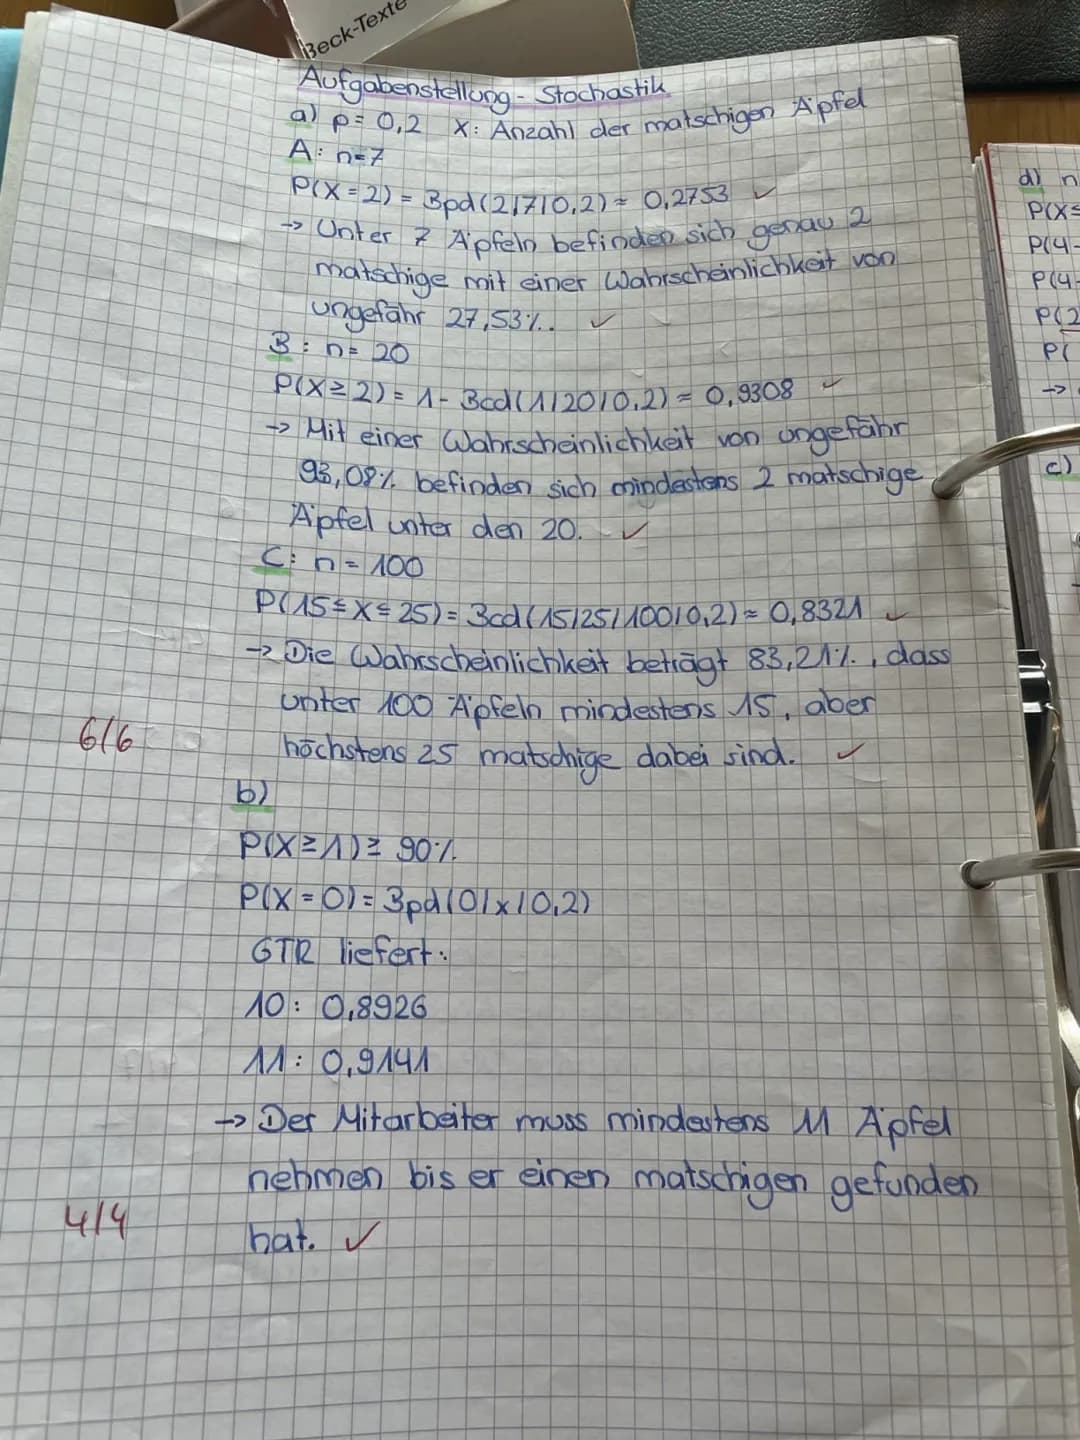 Beck-Texte
Aufgabenstellung - Stochastik
a) p = 0,2 X: Anzahl der matschigen Äpfel
A: n=7
P(X=2) = Bpd(2|7|0,2) ≈ 0,2753 ✓
→ Unter 7 Äpfeln befinden sich genau 2
matschige mit einer Wahrscheinlichkeit von
ungefähr 27,53%. ✓
B: n = 20
P(X≥2) = 1 - Bcd(1|20|0,2) ≈ 0,9308 ✓
→ Mit einer Wahrscheinlichkeit von ungefähr
93,08% befinden sich mindestens 2 matschige
Äpfel unter den 20. ✓
C: n = 100
P(15≤X≤25) = Bcd(15|25|100|0,2) ≈ 0,8321 ✓
→ Die Wahrscheinlichkeit beträgt 83,21%, dass
unter 100 Äpfeln mindestens 15, aber
6/6 höchstens 25 matschige dabei sind. ✓
b)
P(X≥1) ≥ 90%
P(X=0) = Bpd(0|x|0,2)
GTR liefert:
10: 0,8926
11: 0,9141
→ Der Mitarbeiter muss mindestens 11 Äpfel
nehmen bis er einen matschigen gefunden
4/4 hat. ✓
d) n
P(X≤
P(4-
P(4-
P(2
P(
→
c)